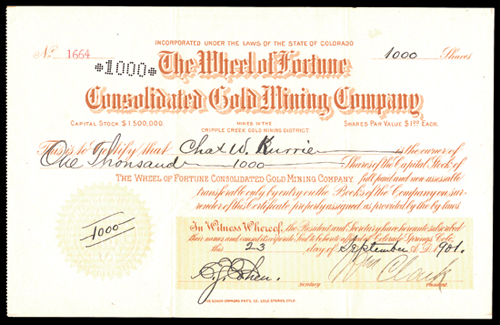 INCORPORATED UNDER THE LAWS OF THE STATE OF COLORADO
No. 1664
*1000*
1000 Shares
The Wheel of Fortune
Consolidated Gold Mining Company,
CAPITAL STOCK $1500,000
MINES IN THE
CRIPPLE CREEK GOLD MINING DISTRICT
SHARES PAR VALUE $1.00 EACH.
This is to Certify that Chas W. Kurrie is the owner of
One Thousand 1000 Shares of the Capital Stock of
THE WHEEL OF FORTUNE CONSOLIDATED GOLD MINING COMPANY, full paid and non assessable
transferable only by entry on the Books of the Company on sur-
render of this Certificate properly assigned as provided by the by laws.
1000
In Witness Whereof, the President and Secretary have hereunto subscribed
their names and caused the corporate Seal to be hereto affixed at Colorado Springs, Colo.
this 23 day of September A.D. 1901.
Clark
Secretary
President